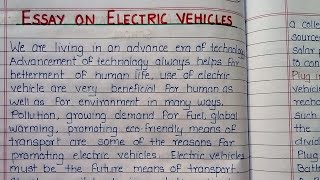 ESSAY ON ELECTRIC VEHICLES
We are living in an advance era of technology
Advancement of technology always helps for
betterment of human life, use of electric
vehicle are very beneficial for human as
well as for environment in many ways.
Pollution, growing demand for fuel, global
warming, promoting eco-friendly means of
transport are some of the reasons for
promoting electric vehicles. Electric vehicles
must be the future means of transport.
a colle
source
solar p
to con
Plug in
vehicl
recha
such
the
divid
Plug
Batt